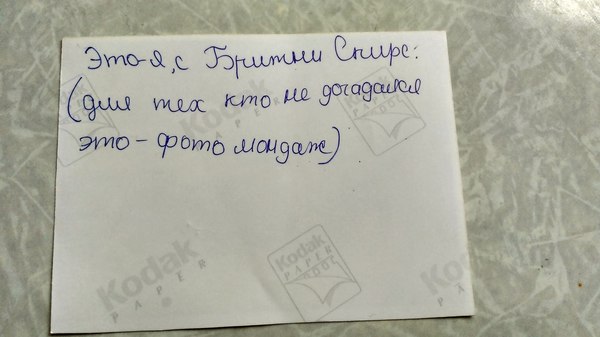 Это-я, с Бритни Спирс:
(для тех кто не догадался
это - фото мондаж)
Kodak
PAPER
Kodak
PAPER
Kodak
PAPER
Kodak
PAPER
Kodak